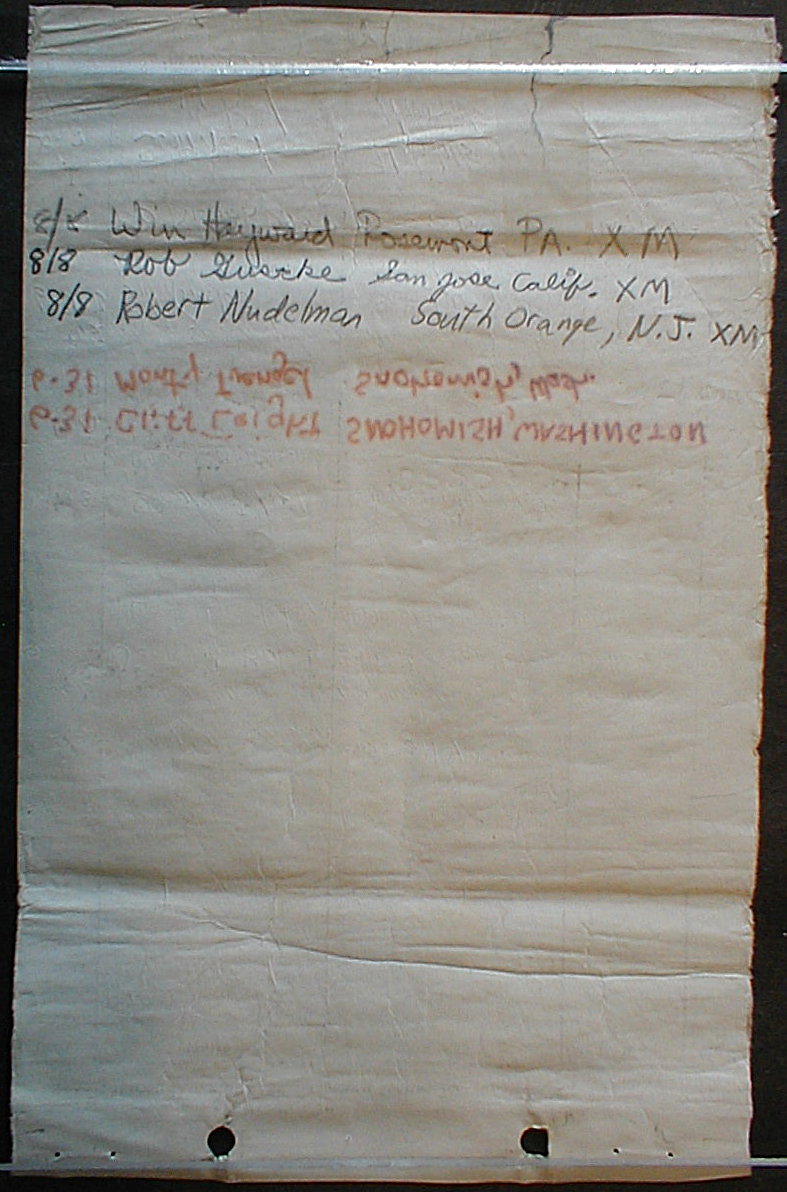 8/8 Win Hayward Rosemont PA. X M
8/8 Rob Guerke San Jose Calif. XM
8/8 Robert Nudelman South Orange, N.J. XM
6-31 Monty Snohomish, Wash.
6-31 Cliff Leight SNOHOMISH, WASHINGTON